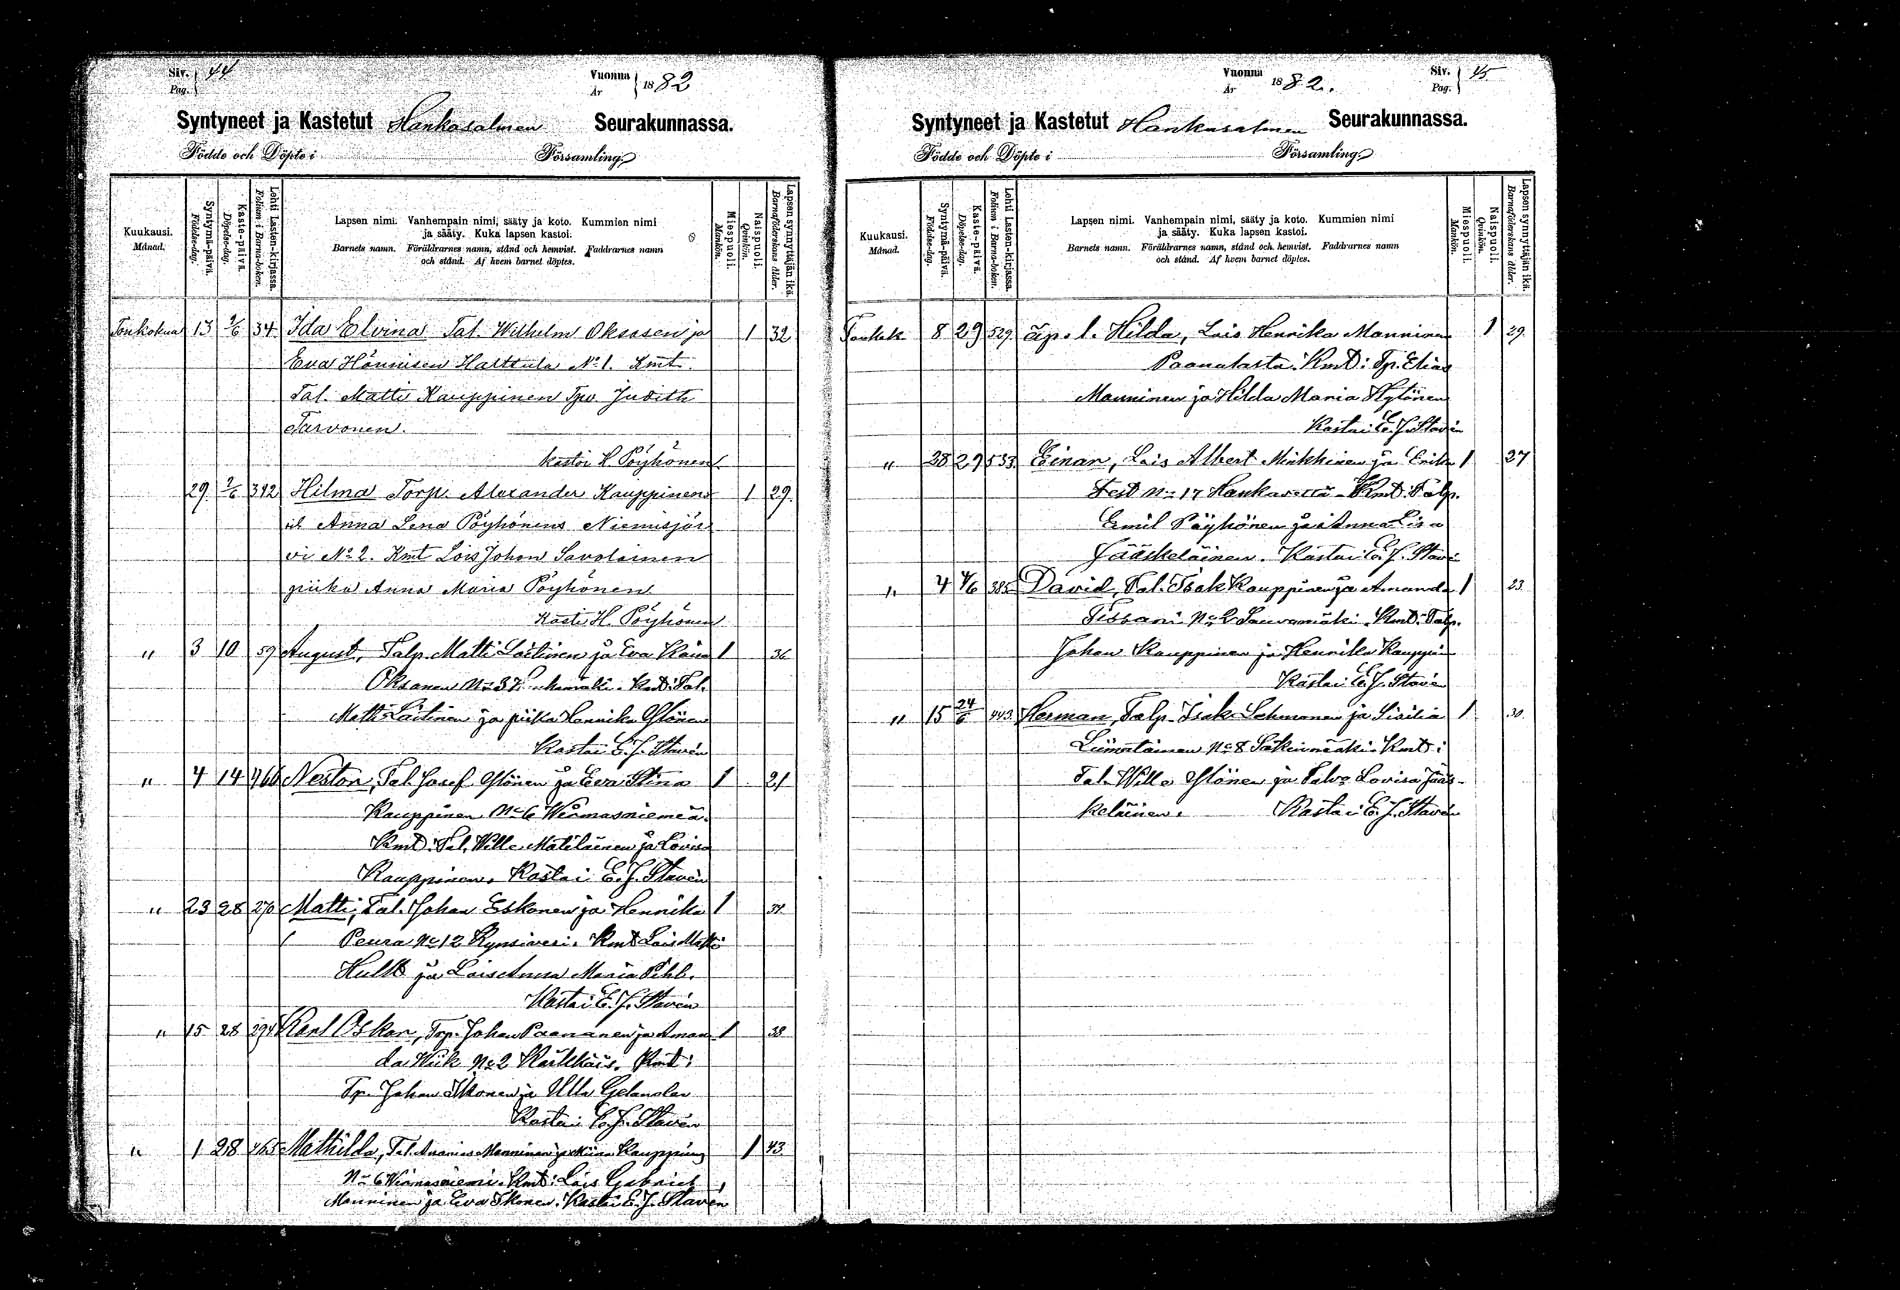 Siv. 44
Pag.
Vuonna 1882
År
Syntyneet ja Kastetut Hankasalmen Seurakunnassa.
Födde och Döpte i Församling
Kuukausi.
Månad.
Syntymä-päivä.
Födelse-dag.
Kaste-päivä.
Döpelse-dag.
Lehti Lasten-kirjassa.
Folium i Barna-boken.
Lapsen nimi. Vanhempain nimi, sääty ja koto. Kummien nimi
ja sääty. Kuka lapsen kastoi.
Barnets namn. Föräldrarnes namn, stånd och hemvist. Faddrarnes namn
och stånd. Af hvem barnet döptes.
Miespuoli.
Mankön.
Naispuoli.
Qvinkön.
Lapsen synnyttäjän ikä.
Barnaföderskans ålder.
Toukokuu 13 2/6 34 Ida Elvina Tal. Wilhelm Oksasen ja 1 32
Eva Hänninen Harttula No 1. Kmt.
Tal. Matti Kauppinen Tpv. Judith
Tarvonen.
kastoi H. Pöyhönen
29 2/6 392 Hilma Torp. Alexander Kauppinens 1 29.
Anna Lena Pöyhönens Niemisjär
vi No 2. Kmt Lois Johan Savolainen
piika Anna Maria Pöyhönen
Kasti H. Pöyhönen
" 3 10 59 August, Talp. Matti Laitinen ja Eva 1 36
Oksanen No 3 Kmt: Tal.
Matti Laitinen ja piika Henrika Ylönen
Kastoi E. J. Stavén
" 4 14 466 Nestor, Tal. Josef Ylönen ja Eva Stina 1 21
Kauppinen No 6 Wärmasniemeä.
Kmt: Tal. Wille Matiläinen ja Lovisa
Kauppinen. Kastoi E. J. Stavén
" 23 28 270 Matti, Tal. Johan Eskonen ja Henrika 1 34
Peura No 12 Kynsivesi. Kmt Lois Matti
Hult ja Lois Anna Maria Pihl.
Kastoi E. J. Stavén
" 15 28 294 Karl Oskar, Trp. Johan Paananen ja Aman 1 38
da Wiik No 2 Kärkkäis. Kmt:
Tp. Johan Ikonen ja Ulla Gelander
Kastoi E. J. Stavén
" 1 28 465 Mathilda, Tal. Ananias Manninen ja Kauppinen 1 43
No 6 Wärmasniemi. Kmt: Lois Gabriel
Manninen ja Eva Ikonen. Kastoi E. J. Stavén
Vuonna 1882.
År
Siv. 45
Pag.
Syntyneet ja Kastetut Hankasalmen Seurakunnassa.
Födde och Döpte i Församling
Kuukausi.
Månad.
Syntymä-päivä.
Födelse-dag.
Kaste-päivä.
Döpelse-dag.
Lehti Lasten-kirjassa.
Folium i Barna-boken.
Lapsen nimi. Vanhempain nimi, sääty ja koto. Kummien nimi
ja sääty. Kuka lapsen kastoi.
Barnets namn. Föräldrarnes namn, stånd och hemvist. Faddrarnes namn
och stånd. Af hvem barnet döptes.
Miespuoli.
Mankön.
Naispuoli.
Qvinkön.
Lapsen synnyttäjän ikä.
Barnaföderskans ålder.
Toukok 8 29 529 äp. l. Hilda, Lois Henrika Manninen 1 29.
Paanalasta. Kmt: Tp. Elias
Manninen ja Hilda Maria Hytönen
Kastoi E. J. Stavén
" 28 29 533. Einar, Lois Albert Minkkinen ja Erika 1 27
Fest No 17 Hankavettä. Kmt: Talp.
Emil Pöyhönen ja Anna Lisa
Jääskeläinen. Kastoi E. J. Stavé
" 4 4/6 385 David, Tal. Isak Kauppinen ja Amanda 1 23
Tissari No 2 Sauvamäki. Kmt: Talp.
Johan Kauppinen ja Henrika Kauppin
Kastoi E. J. Stavén
" 15 24/6 443. Herman, Talp. Isak Lehmonen ja Sisilia 1 30
Liimatainen No 8 Säkinmäki. Kmt:
Tal. Wille Ylönen ja Talv. Lovisa Jääs-
keläinen. Kastoi E. J. Stavén